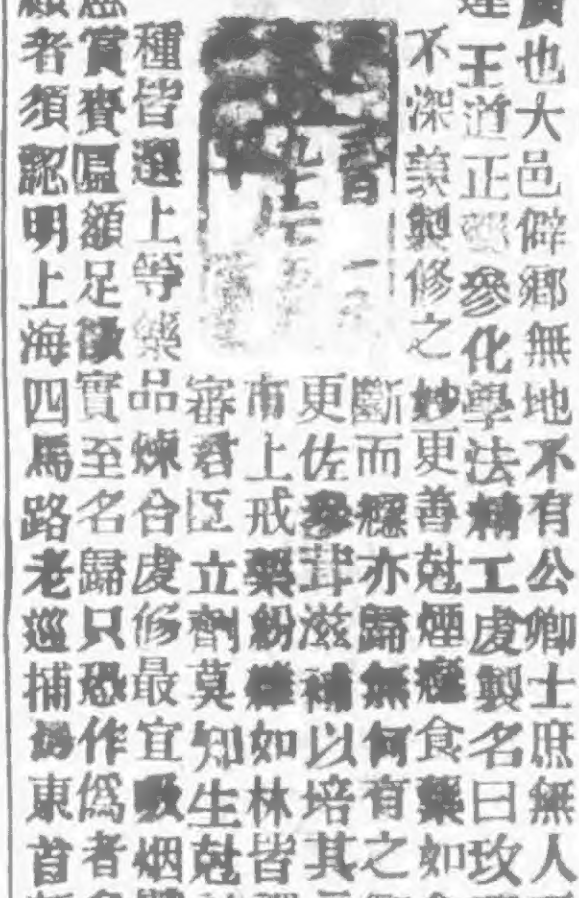 廣也大邑僻鄉無地不有公卿士庶無人
王道正參化學法精工虔製名曰玫
不深羨製修之妙更善尅煙癮食藥如
斷而癮亦歸無何有之
更佐參茸滋補以培其
市上戒藥紛雜如林皆
審君臣立劑莫知生尅
種皆選上等藥品煉合虔修最宜吸烟
賞賚匾額足徵實至名歸只恐作僞者
者須認明上海四馬路老巡捕房東首